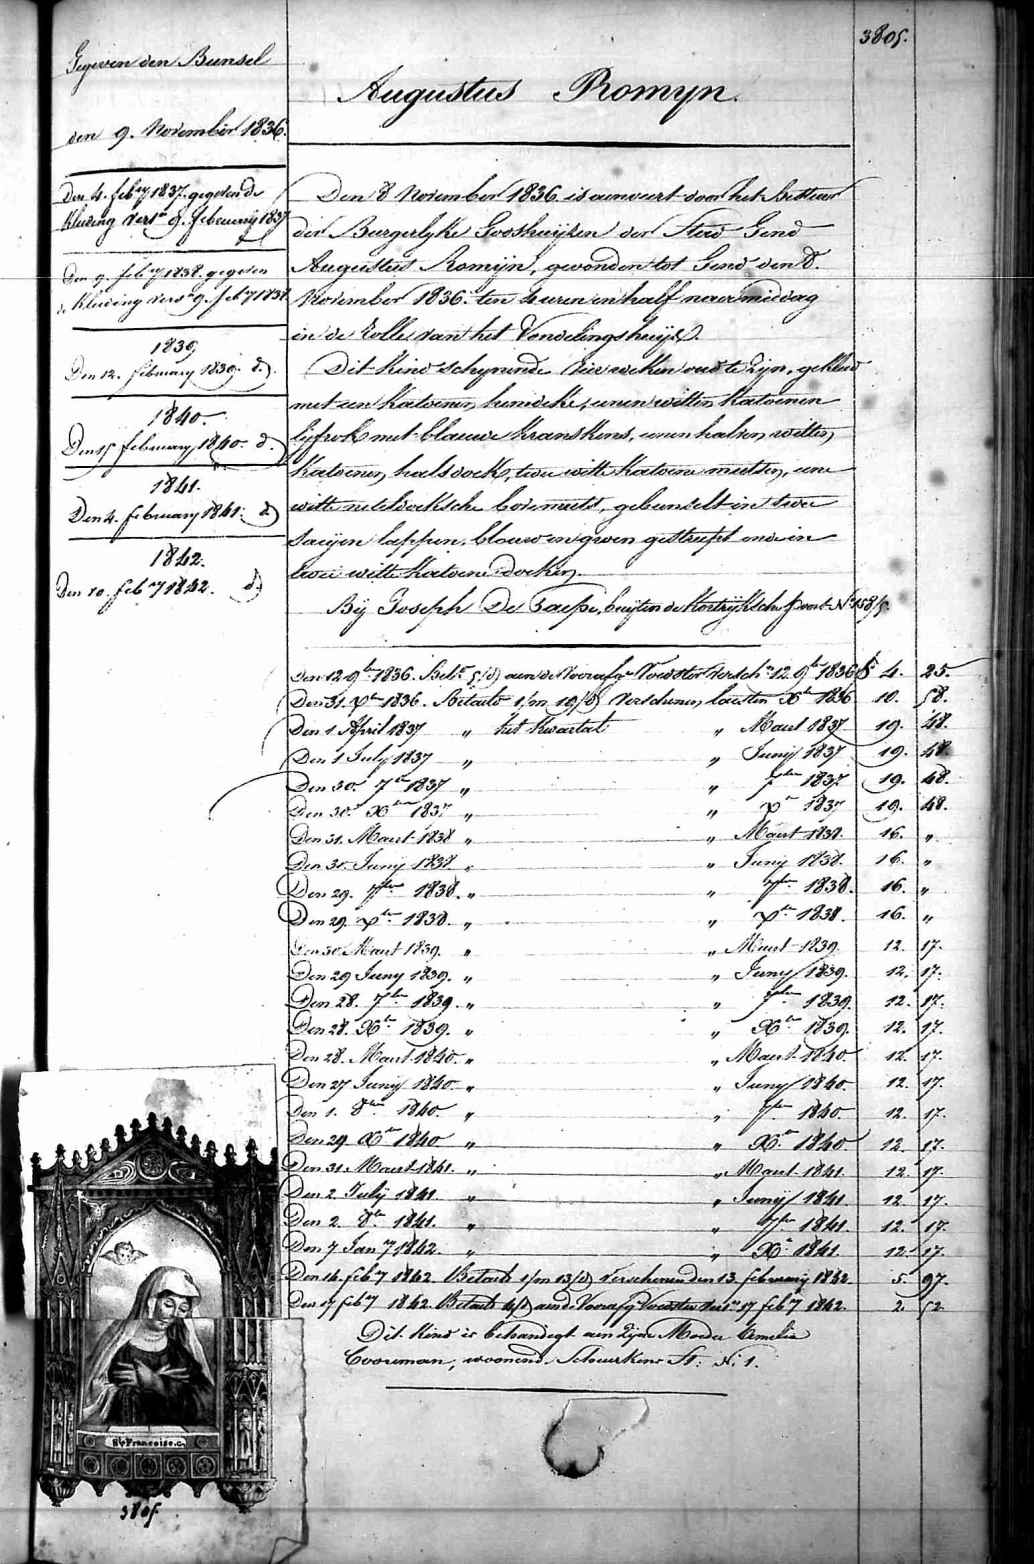 3805.
Gegeven den Bunsel
den 9. November 1836.
Den 4. feb.ry 1837. gegeven de
kleeding vers.n 9. february 1837
Den 9. feb.ry 1838. gegeven
de kleeding vers.n 9. feb.ry 1838.
1839.
Den 12. february 1839. d.o
1840.
Den 15 february 1840. d.o
1841.
Den 4. february 1841. d.o
1842.
Den 10. feb.ry 1842. d.o
Augustus Romijn.
Den 8 November 1836. is aenveert door het Bestuer
der Burgerlyke Godshuijsen der Stad Gend
Augustus Romijn, gevonden tot Gend den 8.
November 1836. ten 4 uren en half naermiddag
in de Rolle van het Vondelingshuijs.
Dit kind schynende vier weken oud te zijn, gekleed
met een katoenen hemdeke, eenen witten katoenen
lijfrok met blauwe kranskens, eenen halven witten
katoenen halsdoek, twee witte katoene mutsen, eene
witte neteldoeksche bovenmuts, gebunselt in twee
saeyen lappen, blauw en groen gestreept ende in
twee witte katoene doeken.
Bij Joseph De Taeije, buijten de Kortryksche poort N.o 158/5.
Den 12 9.ber 1836. Bet.t 5/d aen de Voorafg.e Voedster versch.n 12 9.ber 1836 f 4. 25.
Den 31. X.ber 1836. Betaelt 1/m 19/d Verschenen laesten X.ber 1836 10. 58.
Den 1 April 1837 " het kwartael " Maert 1837 19. 48.
Den 1 July 1837 " " Junij 1837 19. 48.
Den 30. 7.ber 1837 " " 7.ber 1837. 19. 48.
Den 30. X.ber 1837 " " X.r 1837 19. 48.
Den 31. Maert 1838 " " Maert 1838. 16. "
Den 30. Junij 1838 " " Junij 1838. 16. "
Den 29. 7.ber 1838. " " 7.ber 1838. 16. "
Den 29. X.ber 1838. " " X.ber 1838. 16. "
Den 30 Maert 1839. " " Maert 1839. 12. 17.
Den 29 Juny 1839. " " Juny 1839. 12. 17.
Den 28. 7.ber 1839. " " 7.ber 1839. 12. 17.
Den 28. X.ber 1839. " " X.ber 1839. 12. 17.
Den 28. Maert 1840. " " Maert 1840. 12. 17.
Den 27 Junij 1840. " " Juny 1840. 12. 17.
Den 1. 8.ber 1840 " " 7.ber 1840 12. 17.
Den 29 X.ber 1840 " " X.ber 1840 12. 17.
Den 31. Maert 1841. " " Maert 1841. 12 17.
Den 2. Julij 1841. " " Junij 1841 12 17.
Den 2. 8.ber 1841. " " 7.ber 1841 12. 17.
Den 7 Jan.ry 1842. " " X.r 1841. 12. 17.
Den 14. feb.ry 1842. Betaelt 1/m 13/d Verschenen den 13. february 1842. 5. 97.
Den 17 feb.ry 1842. Betaelt 4/d aen de Voorafg.e Voedster vers.n 17 feb.ry 1842. 2. 52
Dit kind is behandigt aen zijne Moeder Amelia
Cooreman, woonende Scheurkens St. N.o 1.
Ste Francoise.
3805